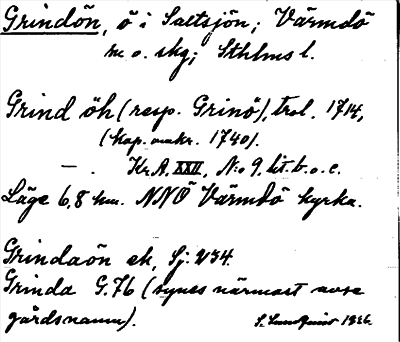 Grindön, ö i Saltsjön; Värmdö
sn o. skg; Sthlms l.
Grind öh (resp. Grinö), trol. 1714,
(kop. omkr. 1740).
— . Kr.A. XXII, N:o 9, lit. b. o. c.
Läge 6,8 km. NNÖ Värmdö kyrka.
Grindaön ek, Sj:
Grinda G.76 (synes närmast avse
gårdsnamn).